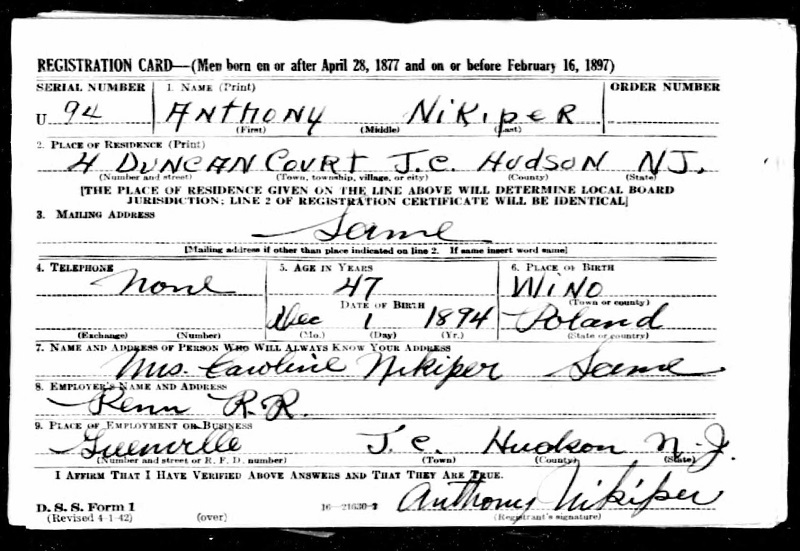 REGISTRATION CARD—(Men born on or after April 28, 1877 and on or before February 16, 1897)
SERIAL NUMBER 1. NAME (Print) ORDER NUMBER
U 94 ANTHONY NIKIPER
(First) (Middle) (Last)
2. PLACE OF RESIDENCE (Print)
4 DUNCAN COURT J.C. HUDSON N.J.
(Number and street) (Town, township, village, or city) (County) (State)
[THE PLACE OF RESIDENCE GIVEN ON THE LINE ABOVE WILL DETERMINE LOCAL BOARD
JURISDICTION; LINE 2 OF REGISTRATION CERTIFICATE WILL BE IDENTICAL]
3. MAILING ADDRESS
Same
[Mailing address if other than place indicated on line 2. If same insert word same]
4. TELEPHONE 5. AGE IN YEARS 6. PLACE OF BIRTH
None 47 WINO
DATE OF BIRTH (Town or county)
Dec 1 1894 Poland
(Exchange) (Number) (Mo.) (Day) (Yr.) (State or country)
7. NAME AND ADDRESS OF PERSON WHO WILL ALWAYS KNOW YOUR ADDRESS
Mrs. Caroline Nikiper Same
8. EMPLOYER'S NAME AND ADDRESS
Penn R.R.
9. PLACE OF EMPLOYMENT OR BUSINESS
Greenville J.C. Hudson N.J.
(Number and street or R. F. D. number) (Town) (County) (State)
I AFFIRM THAT I HAVE VERIFIED ABOVE ANSWERS AND THAT THEY ARE TRUE.
Anthony Nikiper
D. S. S. Form 1
(Revised 4-1-42) (over) 16-21630-2 (Registrant's signature)